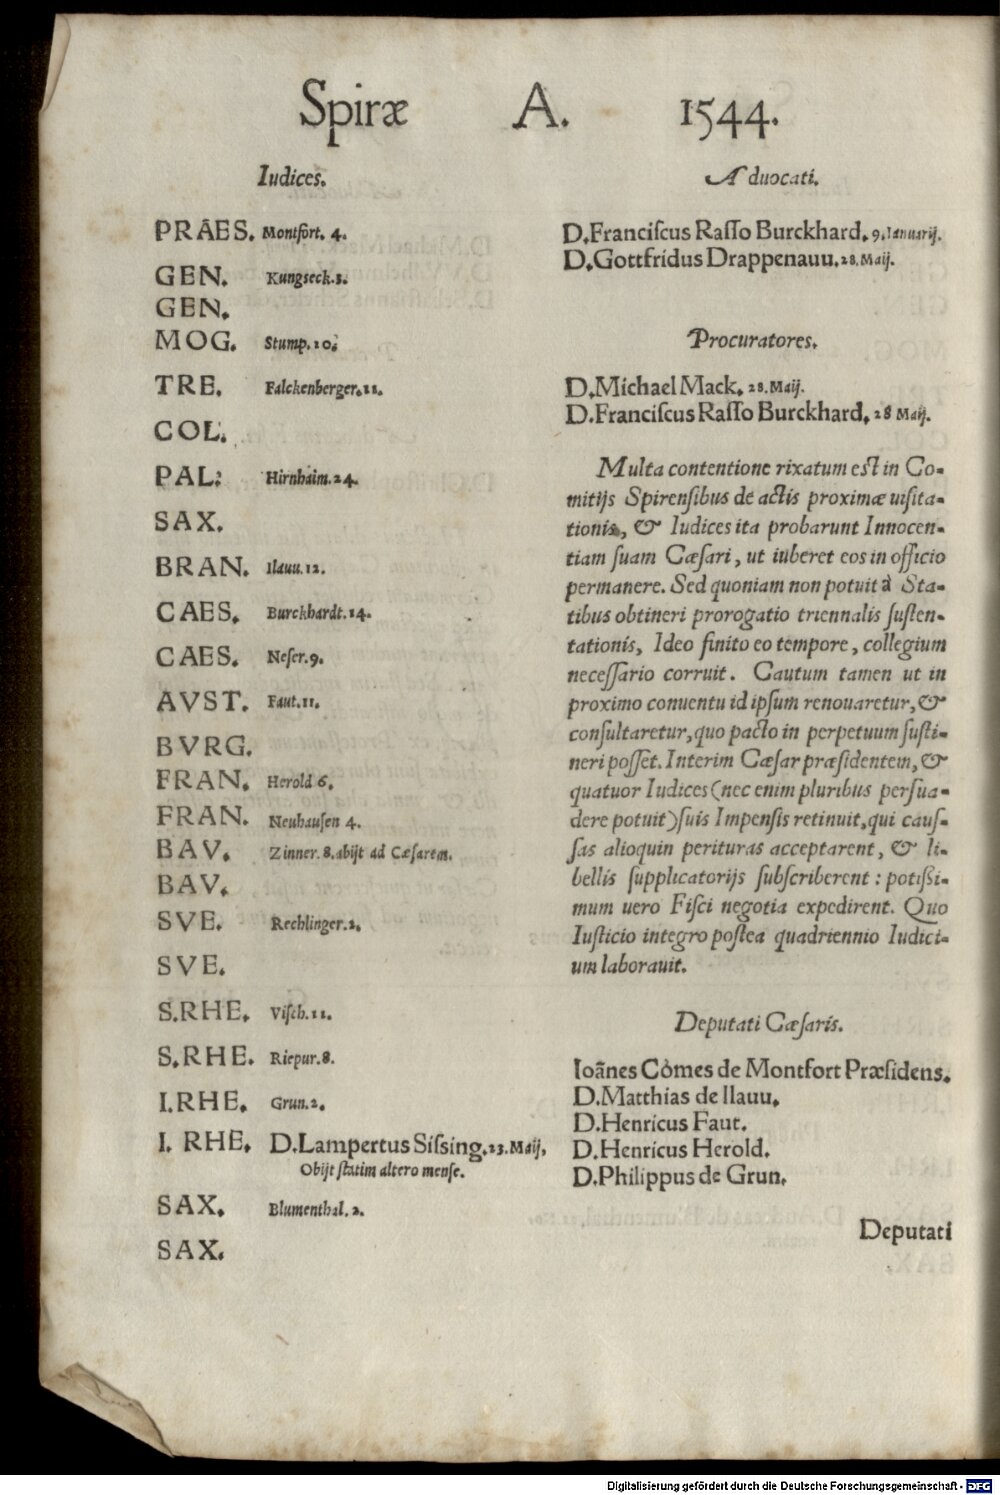 Spiræ A. 1544.
Iudices.
PRÆES. Montfort. 4.
GEN. Kungseck.3.
GEN.
MOG. Stump.10.
TRE. Falckenberger.11.
COL.
PAL: Hirnhaim.24.
SAX.
BRAN. Ilauu.12.
CAES. Burckhardt.14.
CAES. Neser.9.
AVST. Faut.11.
BVRG.
FRAN. Herold 6.
FRAN. Neuhausen 4.
BAV. Zinner.8.abijt ad Cæsarem.
BAV.
SVE. Rechlinger.2.
SVE.
S.RHE. Visch.11.
S.RHE. Riepur.8.
I.RHE. Grun.2.
I. RHE. D.Lampertus Sissing.23.Maij.
Obijt statim altero mense.
SAX. Blumenthal.2.
SAX.
Aduocati.
D.Franciscus Rasso Burckhard.9.Ianuarij.
D.Gottfridus Drappenauu.28.Maij.
Procuratores.
D.Michael Mack.28.Maij.
D.Franciscus Rasso Burckhard.28 Maij.
Multa contentione rixatum est in Co-
mitijs Spirensibus de actis proximæ uisita-
tionis, & Iudices ita probarunt Innocen-
tiam suam Cæsari, ut iuberet eos in officio
permanere. Sed quoniam non potuit à Sta-
tibus obtineri prorogatio triennalis susten-
tationis, Ideo finito eo tempore, collegium
necessario corruit. Cautum tamen ut in
proximo conuentu id ipsum renouaretur, &
consultaretur, quo pacto in perpetuum susti-
neri posset. Interim Cæsar præsidentem, &
quatuor Iudices (nec enim pluribus persua-
dere potuit) suis Impensis retinuit, qui caus-
sas alioquin perituras acceptarent, & li-
bellis supplicatorijs subscriberent: potißi-
mum uero Fisci negotia expedirent. Quo
Iusticio integro postea quadriennio Iudici-
um laborauit.
Deputati Cæsaris.
Ioānes Cômes de Montfort Præsidens.
D.Matthias de Ilauu.
D.Henricus Faut.
D.Henricus Herold.
D.Philippus de Grun.
Deputati
Digitalisierung gefördert durch die Deutsche Forschungsgemeinschaft - DFG